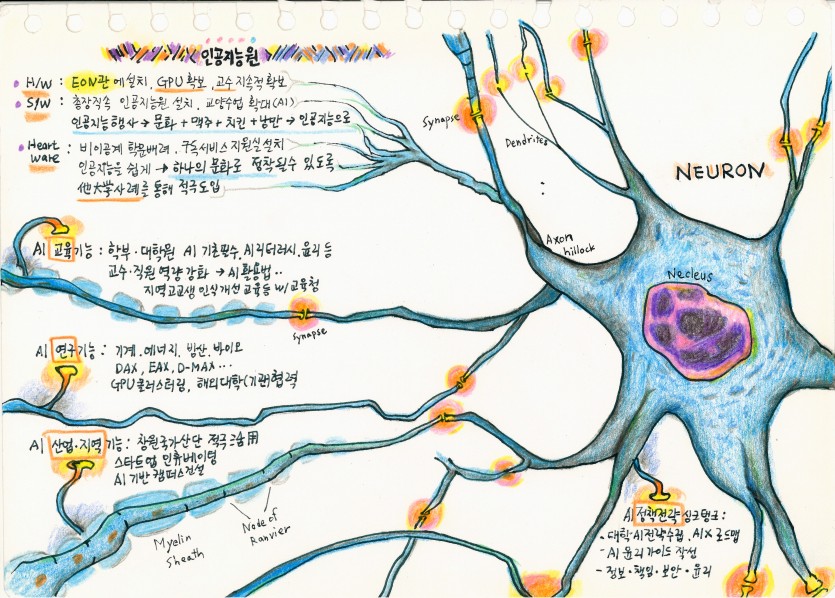 인공지능원
• H/W : EON관에 설치, GPU 확보, 교수 지속적 확보
• S/W : 총장직속 인공지능원 설치, 교양수업 확대(AI)
인공지능행사 → 문화 + 맥주 + 치킨 + 낭만 → 인공지능으로
• Heart ware : 비이공계 학문배려, 구독서비스 지원실 설치
인공지능을 쉽게 → 하나의 문화로 정착될 수 있도록
他大學사례를 통해 적극도입
Synapse
Dendrites
NEURON
Axon
hillock
Necleus
AI 교육기능 : 학부·대학원 AI 기초필수, AI리터러시, 윤리 등
교수·직원 역량 강화 → AI 활용법..
지역고교생 인식개선 교육등 w/ 교육청
Synapse
AI 연구기능 : 기계, 에너지, 방산, 바이오
DAX, EAX, D-MAX ...
GPU클러스터링, 해외대학(기관)협력
AI 산업·지역기능 : 창원국가산단 적극 활用
스타트업 인큐베이팅
AI 기반 캠퍼스건설
Myelin
Sheath
Node of
Ranvier
AI 정책전략 싱크탱크 :
- 대학AI전략수립, AIX 로드맵
- AI 윤리가이드 작성
- 정보·책임·보안·윤리